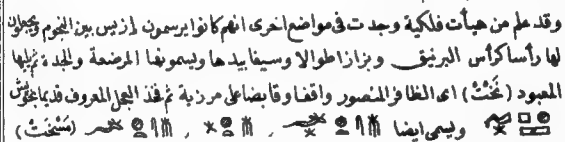 وقد علم من هيأت فلكية وجدت فى مواضع اخرى انهم كانوا يرسمون ازيس بين النجوم ويجعلون
لها رأسا كرأس البرنيق وبزازا طوالا وسيفا بيدها ويسمونها المرضعة والجدة ثم يليها
المعبود (نخت) اى الظافر المنصور واقفا وقابضا على مرزبة ثم فخذ العجل المعروف قديما
ويسمى ايضا (مسخت)